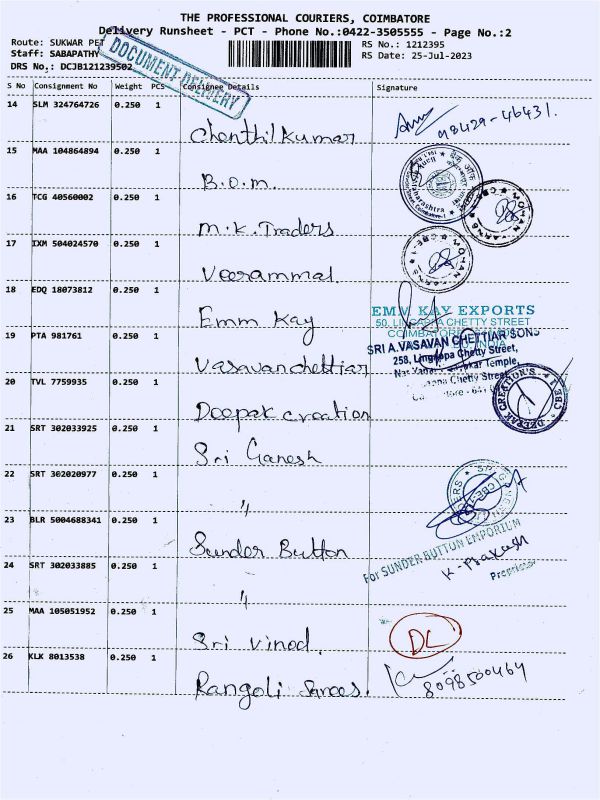 THE PROFESSIONAL COURIERS, COIMBATORE
Delivery Runsheet - PCT - Phone No.:0422-3505555 - Page No.:2
Route: SUKWAR PET
RS No.: 1212395
Staff: SABAPATHY
RS Date: 25-Jul-2023
DRS No.: DCJB121239502
DOCUMENT DELIVERY
S No Consignment No Weight PCS Consignee Details Signature
14 SLM 324764726 0.250 1
Chenthilkumar 98429-46431.
15 MAA 104864894 0.250 1
B.O.M.
16 TCG 40560002 0.250 1
M.K. Traders
17 IXM 504024570 0.250 1
Veerammal.
18 EDQ 18073812 0.250 1
Emm Kay
EMM KAY EXPORTS
50, LINGAPPA CHETTY STREET
19 PTA 981761 0.250 1
Vasavanchettiar
SRI A.VASAVAN CHETTIAR SONS
258, Lingappa Chetty Street,
20 TVL 7759935 0.250 1
Deepak creation
DEEPAK CREATION'S CBE 1
21 SRT 302033925 0.250 1
Sri Ganesh
22 SRT 302020977 0.250 1
〃
23 BLR 5004688341 0.250 1
Sunder Button
For SUNDER BUTTON EMPORIUM
K. Prakash
Proprietor
24 SRT 302033885 0.250 1
〃
25 MAA 105051952 0.250 1
Sri Vinod.
DL
26 KLK 8013538 0.250 1
Rangoli Sarees.
8098500464